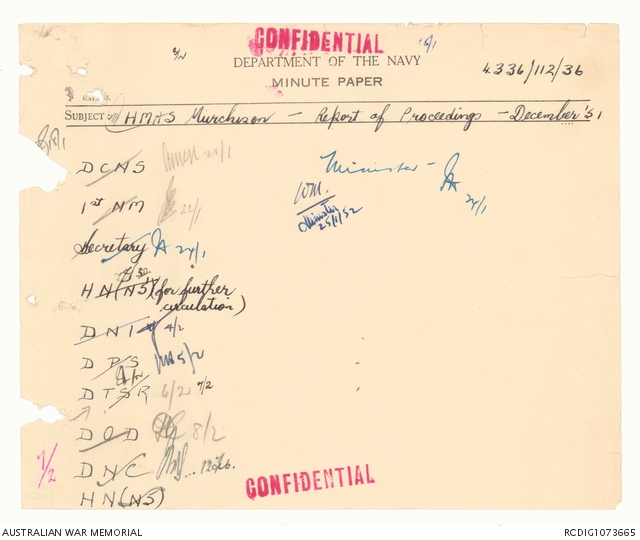 CONFIDENTIAL
DEPARTMENT OF THE NAVY
MINUTE PAPER
4336/112/36
SUBJECT: HMAS Murchison — Report of Proceedings — December '51
DCNS 21/1
1st NM 22/1
Minister — 24/1
WM.
Minister
25/1/52
Secretary 24/1
HN(NS) (for further
circulation)
DNI 4/2
DPS 5/2
DTSR 6/2 7/2
DOD 8/2
7/2
DNC
HN(NS)
CONFIDENTIAL
AUSTRALIAN WAR MEMORIAL
RCDIG1073665